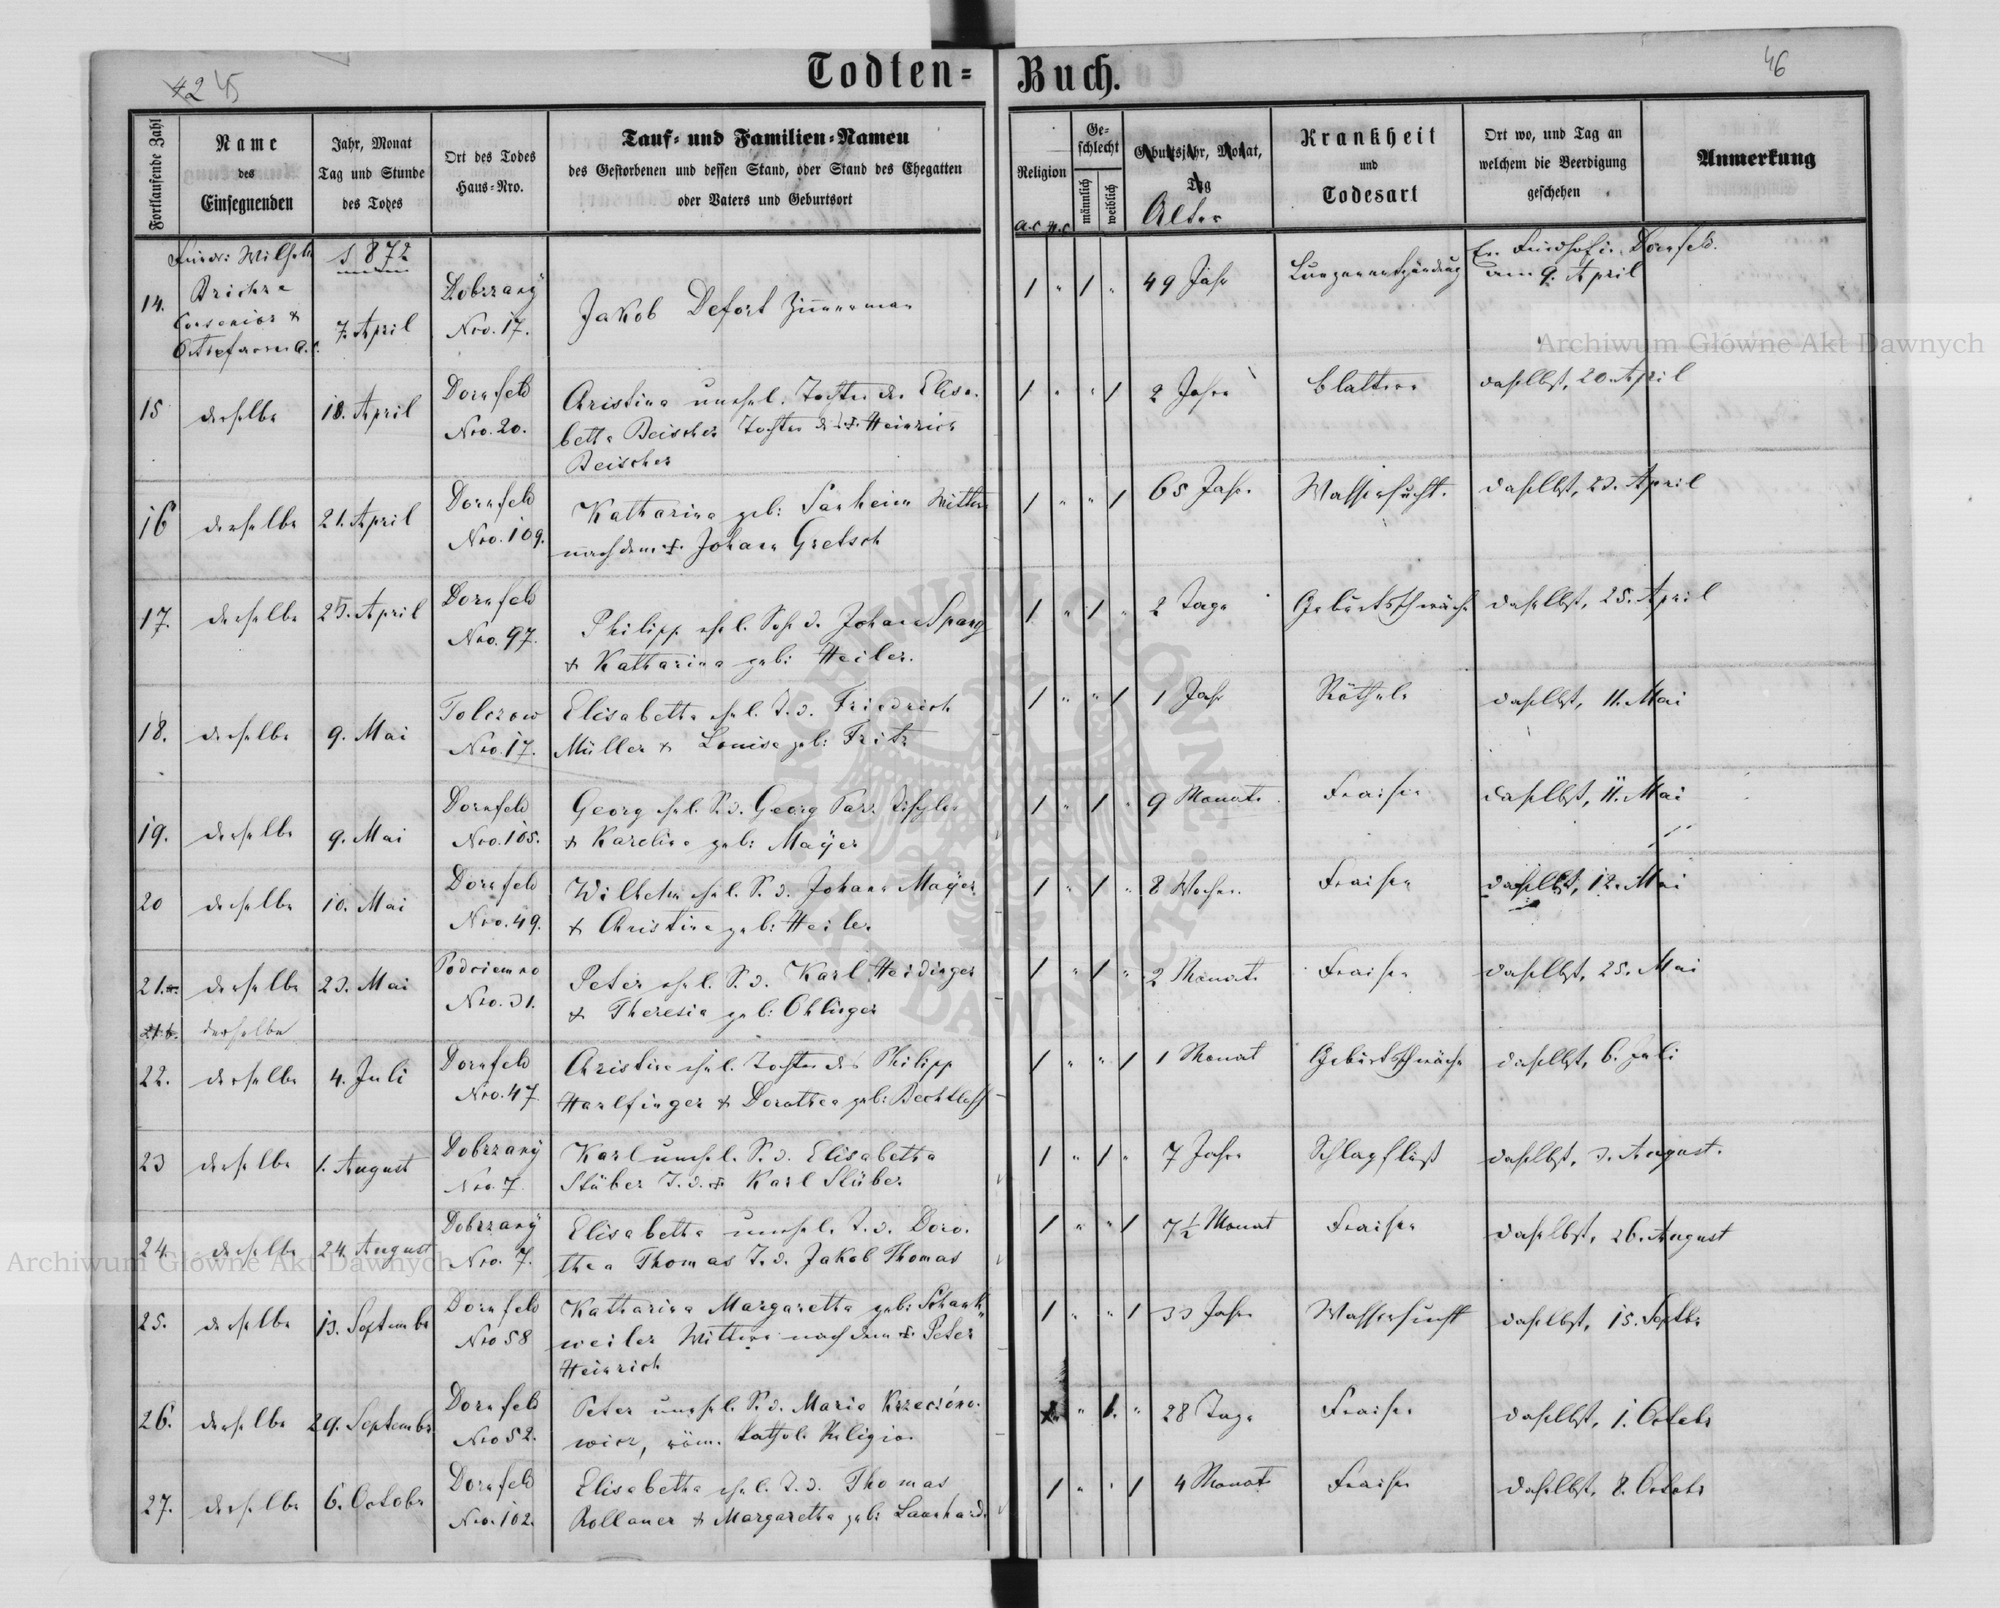 42 45
Todten-Buch.
46
Fortlaufende Zahl
Name
des
Einsegnenden
Jahr, Monat
Tag und Stunde
des Todes
Ort des Todes
Haus-Nro.
Tauf- und Familien-Namen
des Gestorbenen und dessen Stand, oder Stand des Ehegatten
oder Vaters und Geburtsort
Religion
a.c. h.c.
Ge-
schlecht
männlich
weiblich
Geburtsjahr, Monat,
Tag
Alter
Krankheit
und
Todesart
Ort wo, und Tag an
welchem die Beerdigung
geschehen
Anmerkung
14.
Wilhelm
1872
7. April
Dobrzany
Nro. 17.
Jakob Defort Zimmerman
1 " 1 "
49 Jahr
Lungenentzündung
Friedhof in Dornfeld
am 9. April
15
derselbe
18. April
Dornfeld
Nro. 20.
Christina unehel. Tochter der Elisa-
betha Beischer Tochter des Heinrich
Beischer
1 " " 1
2 Jahre
Blattern
daselbst, 20. April
16
derselbe
21. April
Dornfeld
Nro. 109.
Katharina geb: Sanheim Wittwe
nach dem Johann Gretsch
1 " " 1
65 Jahr
Wassersucht.
daselbst, 23. April
17.
derselbe
25. April
Dornfeld
Nro. 97.
Philipp ehel. Sohn d. Johann Spang
& Katharina geb: Heiler.
1 " 1 "
2 Tage
Geburtsschwäche
daselbst, 25. April
18.
derselbe
9. Mai
Tolczow
Nro. 17.
Elisabetha ehel. T. d. Friedrich
Müller & Louise geb: Fritz
1 " " 1
1 Jahr
Rötheln
daselbst, 11. Mai
19.
derselbe
9. Mai
Dornfeld
Nro. 105.
Georg ehel. S. d. Georg
& Karolina geb: Mayer
1 " 1 "
9 Monate
Fraisen
daselbst, 11. Mai
20
derselbe
10. Mai
Dornfeld
Nro. 49.
Wilhelm ehel. S. d. Johann Mayer
& Christina geb: Heiler
1 " 1 "
8 Wochen
Fraisen
daselbst, 12. Mai
21.
derselbe
23. Mai
Podciemno
Nro. 31.
Peter ehel. S. d. Karl Heidinger
& Theresia geb: Ohlinger
1 " 1 "
2 Monate
Fraisen
daselbst, 25. Mai
21.b.
derselbe
22.
derselbe
4. Juli
Dornfeld
Nro. 47.
Christina ehel. Tochter des Philipp
Harlfinger & Dorothea geb: Bechtloff
1 " " 1
1 Monat
Geburtsschwäche
daselbst, 6. Juli
23
derselbe
1. August
Dobrzany
Nro. 7.
Karl unehel. S. d. Elisabetha
Stüber T. d. Karl Stüber
1 " 1 "
7 Jahre
Schlagfluß
daselbst, 3. August.
24.
derselbe
24. August
Dobrzany
Nro. 7.
Elisabetha unehel. T. d. Doro-
thea Thomas T. d. Jakob Thomas
1 " " 1
7½ Monat
Fraisen
daselbst, 26. August
25.
derselbe
13. September
Dornfeld
Nro 58
Katharina Margaretha geb: Schank-
weiler Wittwe nach dem Peter
Heinrich
1 " " 1
33 Jahre
Wassersucht
daselbst, 15. Septbr
26.
derselbe
29. September
Dornfeld
Nro 52.
Peter unehel. S. d. Maria
wicz, röm. kathol. Religion
" 1. "
28 Tage
Fraisen
daselbst, 1. Octobr
27.
derselbe
6. Octobr
Dornfeld
Nro. 102.
Elisabetha ehel. T. d. Thomas
Rollauer & Margaretha geb: Launhardt
1 " " 1
4 Monate
Fraisen
daselbst, 8. Octobr
Archiwum Główne Akt Dawnych
Archiwum Główne Akt Dawnych
ARCHIWUM GŁÓWNE AKT DAWNYCH